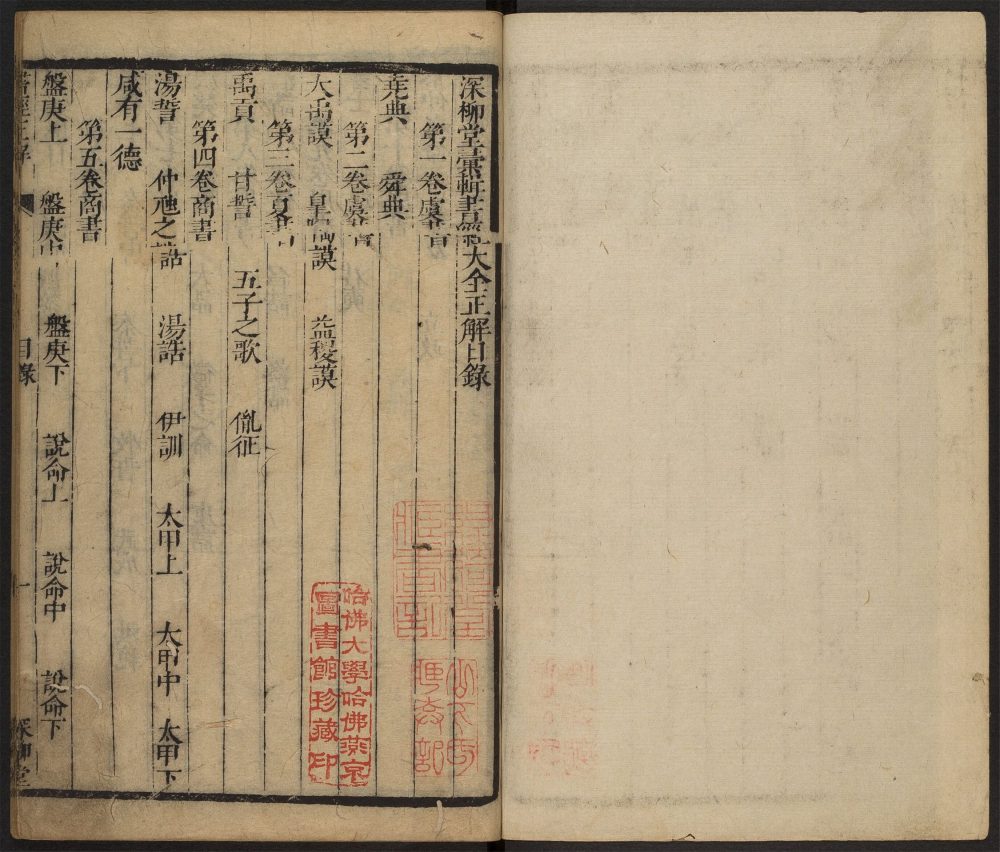 深柳堂彙輯書經大全正解目錄
第一卷虞書
堯典 舜典
第二卷虞書
大禹謨 皐陶謨 益稷謨
第三卷夏書
禹貢 甘誓 五子之歌 胤征
第四卷商書
湯誓 仲虺之誥 湯誥 伊訓 太甲上 太甲中 太甲下
咸有一德
第五卷商書
盤庚上 盤庚中 盤庚下 說命上 說命中 說命下
書經正解 目錄 一 深柳堂
哈佛大學哈佛燕京
圖書館珍藏印